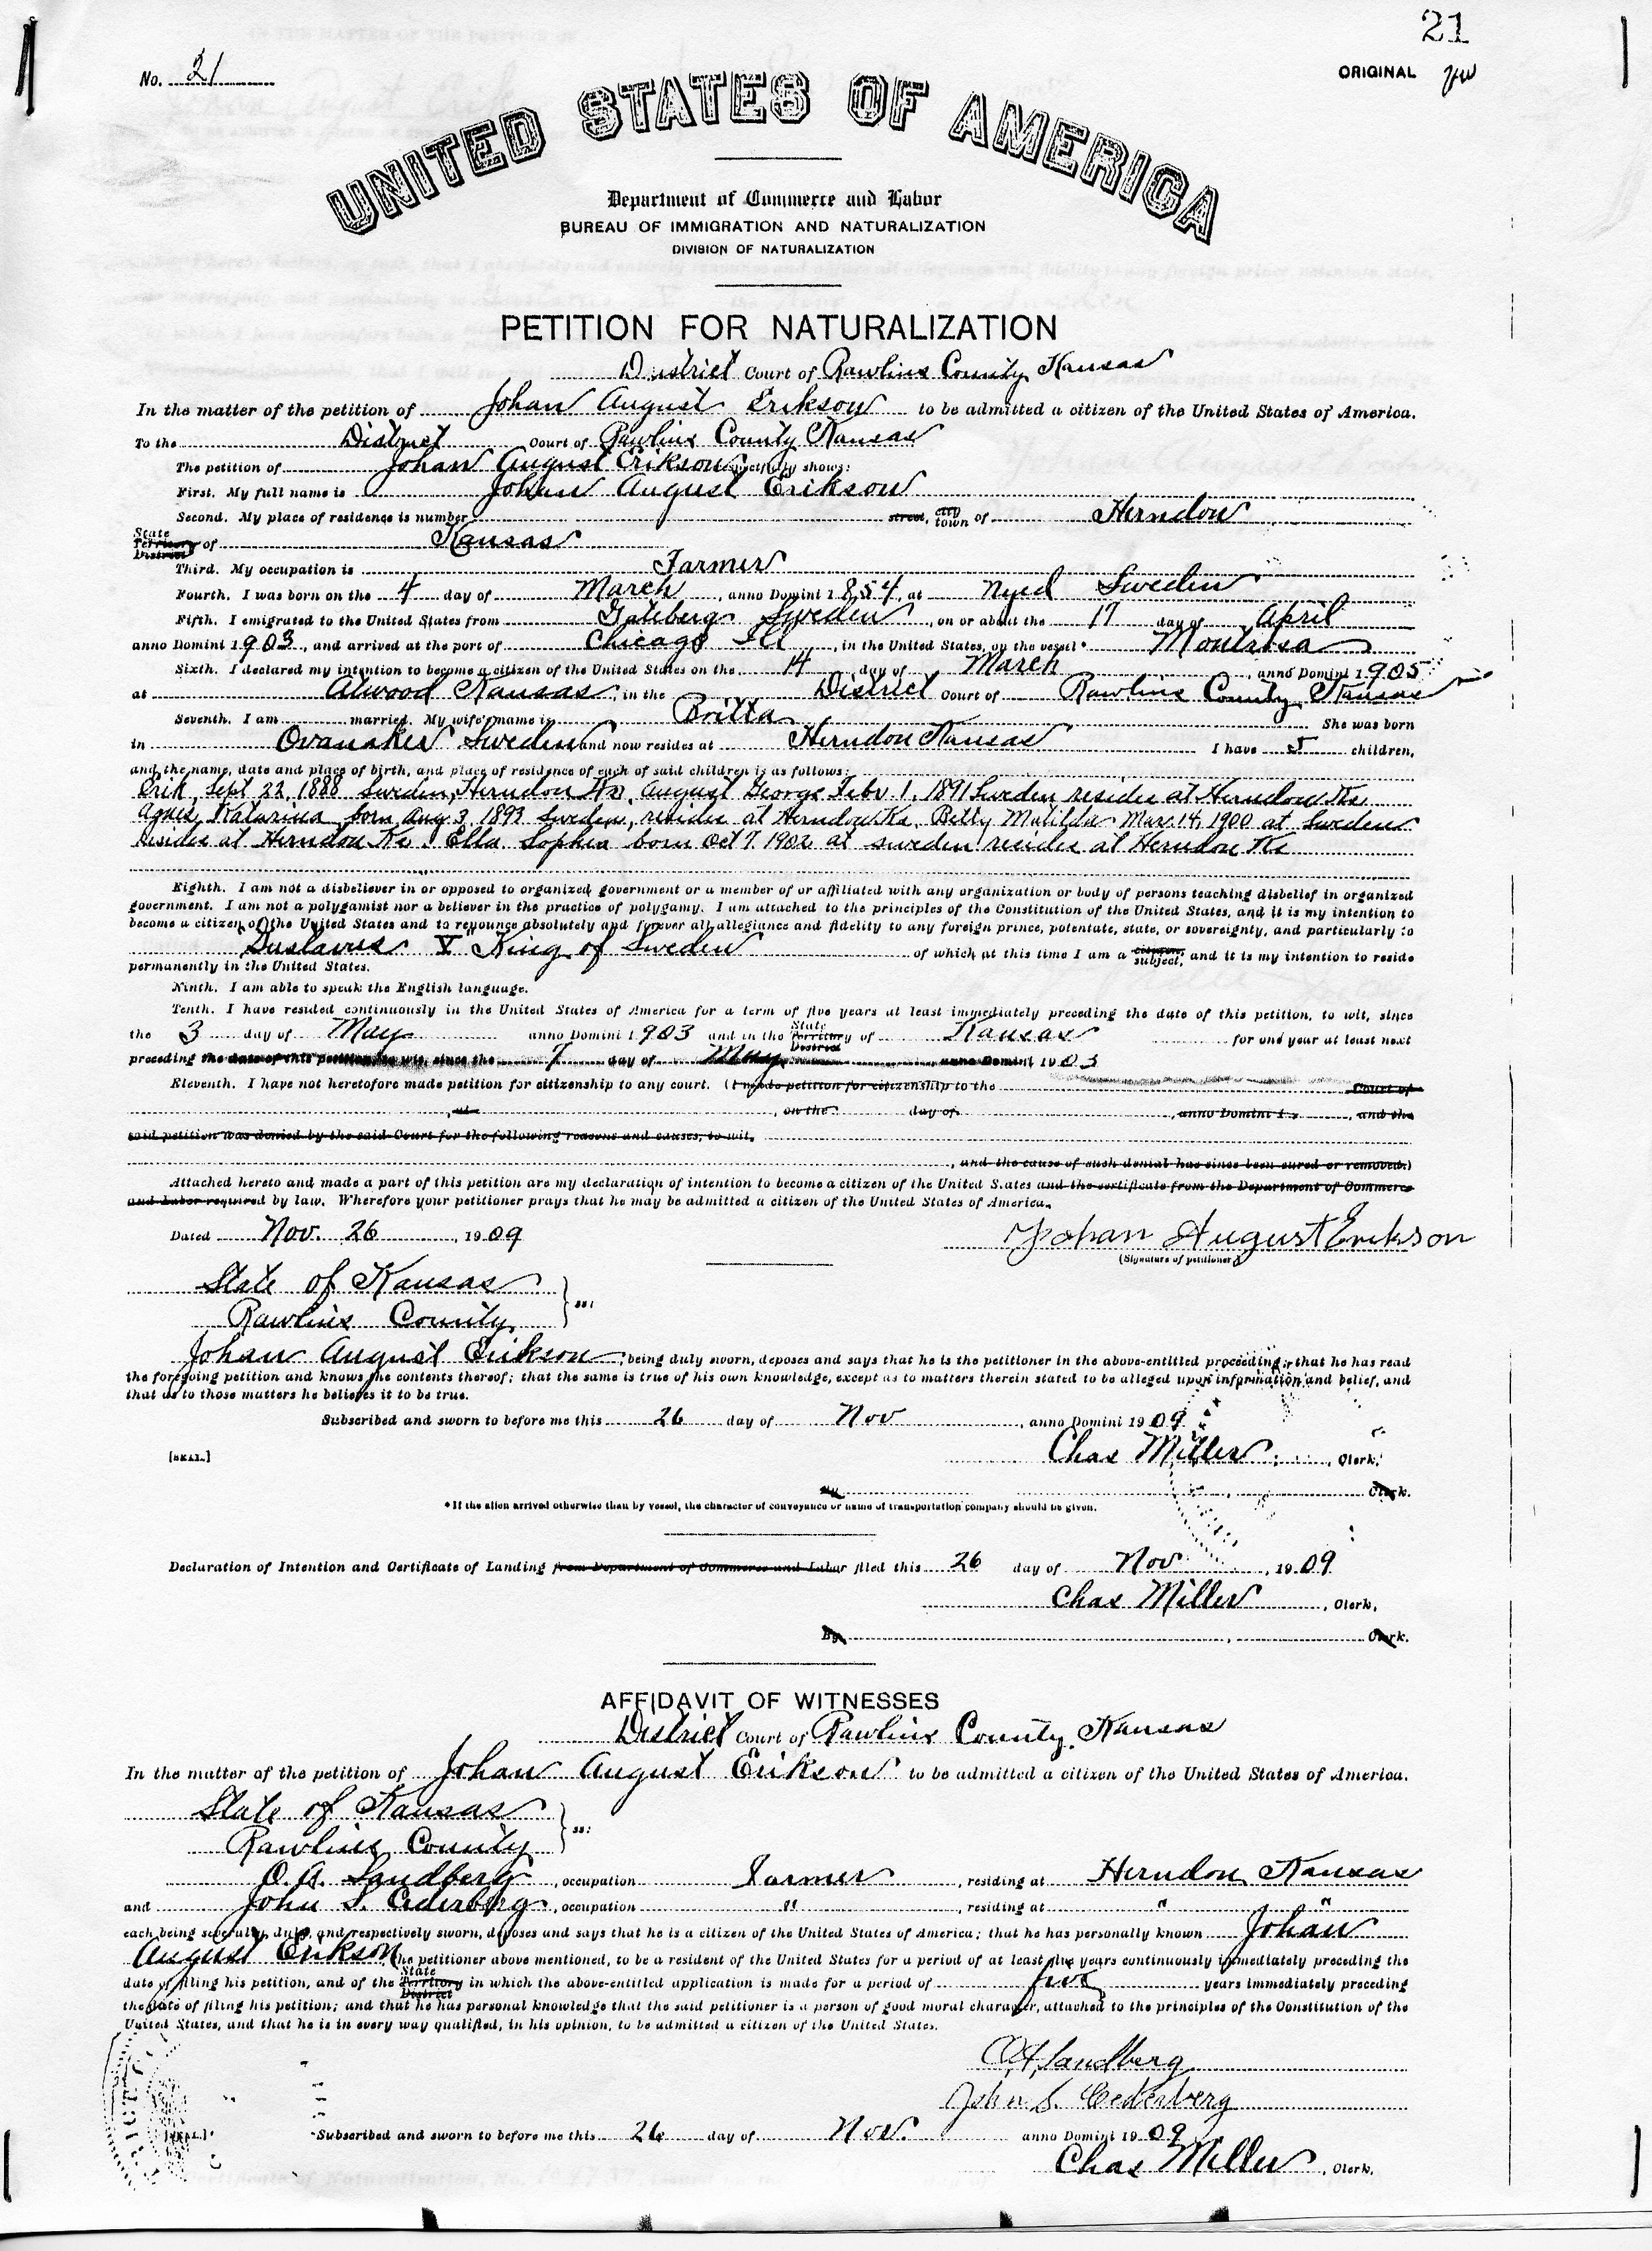 21
No. 21
ORIGINAL
UNITED STATES OF AMERICA
Department of Commerce and Labor
BUREAU OF IMMIGRATION AND NATURALIZATION
DIVISION OF NATURALIZATION
PETITION FOR NATURALIZATION
District Court of Rawlins County Kansas
In the matter of the petition of Johan August Erikson to be admitted a citizen of the United States of America.
To the District Court of Rawlins County Kansas
The petition of Johan August Erikson respectfully shows:
First. My full name is Johan August Erikson
Second. My place of residence is number street, city town of Herndon
State Territory District of Kansas
Third. My occupation is Farmer
Fourth. I was born on the 4 day of March, anno Domini 1854, at Nyed Sweden
Fifth. I emigrated to the United States from Goteberg Sweden, on or about the 17 day of April
anno Domini 1903, and arrived at the port of Chicago Ill, in the United States, on the vessel* Montrosa
Sixth. I declared my intention to become a citizen of the United States on the 14 day of March, anno Domini 1905
at Atwood Kansas, in the District Court of Rawlins County Kansas
Seventh. I am married. My wife's name is Britta She was born
in Ovanaker Sweden and now resides at Herndon Kansas I have 5 children,
and the name, date and place of birth, and place of residence of each of said children is as follows:
Erik, Sept 22, 1888 Sweden, Herndon Ks, August George Febr 1, 1891 Sweden resides at Herndon Ks
Agnes Katarina born Aug 3, 1893 Sweden, resides at Herndon Ks, Betty Matilda Mar. 14, 1900 at Sweden
resides at Herndon Ks. Ella Sophia born Oct 7 1902 at Sweden resides at Herndon Ks
Eighth. I am not a disbeliever in or opposed to organized government or a member of or affiliated with any organization or body of persons teaching disbelief in organized
government. I am not a polygamist nor a believer in the practice of polygamy. I am attached to the principles of the Constitution of the United States, and it is my intention to
become a citizen of the United States and to renounce absolutely and forever all allegiance and fidelity to any foreign prince, potentate, state, or sovereignty, and particularly to
Gustavus V King of Sweden of which at this time I am a citizen, subject, and it is my intention to reside
permanently in the United States.
Ninth. I am able to speak the English language.
Tenth. I have resided continuously in the United States of America for a term of five years at least immediately preceding the date of this petition, to wit, since
the 3 day of May anno Domini 1903 and in the State Territory District of Kansas for one year at least next
preceding the date of this petition, to wit, since the 7 day of May anno Domini 1903
Eleventh. I have not heretofore made petition for citizenship to any court. (I made petition for citizenship to the Court of
, at , on the day of , anno Domini 1 , and the
said petition was denied by the said Court for the following reasons and causes, to wit,
, and the cause of such denial has since been cured or removed.)
Attached hereto and made a part of this petition are my declaration of intention to become a citizen of the United States and the certificate from the Department of Commerce
and Labor required by law. Wherefore your petitioner prays that he may be admitted a citizen of the United States of America.
Dated Nov. 26, 1909
Johan August Erikson
(Signature of petitioner)
State of Kansas
Rawlins County } ss:
Johan August Erikson, being duly sworn, deposes and says that he is the petitioner in the above-entitled proceeding; that he has read
the foregoing petition and knows the contents thereof; that the same is true of his own knowledge, except as to matters therein stated to be alleged upon information and belief, and
that as to those matters he believes it to be true.
Subscribed and sworn to before me this 26 day of Nov, anno Domini 1909
[SEAL.] Chas Miller, Clerk.
By , Clerk.
*If the alien arrived otherwise than by vessel, the character of conveyance or name of transportation company should be given.
Declaration of Intention and Certificate of Landing from Department of Commerce and Labor filed this 26 day of Nov, 1909
Chas Miller, Clerk.
By , Clerk.
AFFIDAVIT OF WITNESSES
District Court of Rawlins County Kansas
In the matter of the petition of Johan August Erikson to be admitted a citizen of the United States of America.
State of Kansas
Rawlins County } ss:
O. A. Sandberg, occupation Farmer, residing at Herndon Kansas
and John S. Cederberg, occupation ", residing at " "
each being severally, duly, and respectively sworn, deposes and says that he is a citizen of the United States of America; that he has personally known Johan
August Erikson the petitioner above mentioned, to be a resident of the United States for a period of at least five years continuously immediately preceding the
date of filing his petition, and of the State Territory District in which the above-entitled application is made for a period of five years immediately preceding
the date of filing his petition; and that he has personal knowledge that the said petitioner is a person of good moral character, attached to the principles of the Constitution of the
United States, and that he is in every way qualified, in his opinion, to be admitted a citizen of the United States.
O A Sandberg
John S. Cederberg
[SEAL.] Subscribed and sworn to before me this 26 day of Nov. anno Domini 1909
Chas Miller, Clerk.